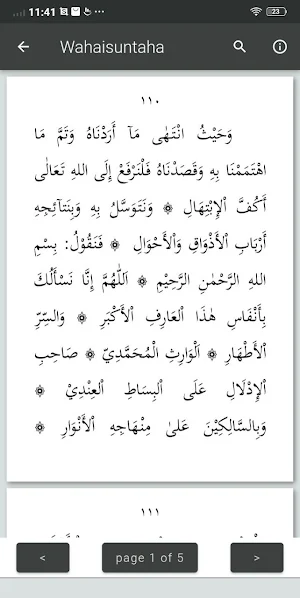 11:41
23
Wahaisuntaha
١١٠
وَحَيْثُ انْتَهٰى مَآ أَرَدْنَاهُ وَتَمَّ مَا
اهْتَمَمْنَا بِهِ وَقَصَدْنَاهُ فَلْنَرْفَعْ إِلَى اللهِ تَعَالٰى
أَكُفَّ ٱلْإِبْتِهَالِ ۞ وَنَتَوَسَّلُ بِهِ وَبِنَتَآئِجِهِ
أَرْبَابِ ٱلْأَذْوَاقِ وَٱلْأَحْوَالِ ۞ فَنَقُوْلُ: بِسْمِ
اللهِ الرَّحْمٰنِ الرَّحِيْمِ ۞ اَللّٰهُمَّ إِنَّا نَسْأَلُكَ
بِأَنْفَاسِ هٰذَا ٱلْعَارِفِ ٱلْأَكْبَرِ ۞ وَالسِّرِّ
ٱلْأَطْهَارِ ۞ ٱلْوَارِثِ ٱلْمُحَمَّدِيِّ ۞ صَاحِبِ
ٱلْإِدْلَالِ عَلَى ٱلْبِسَاطِ ٱلْعِنْدِيْ ۞
وَبِالسَّالِكِيْنَ عَلىٰ مِنْهَاجِهِ ٱلْأَنْوَارِ ۞
١١١
<
page 1 of 5
>